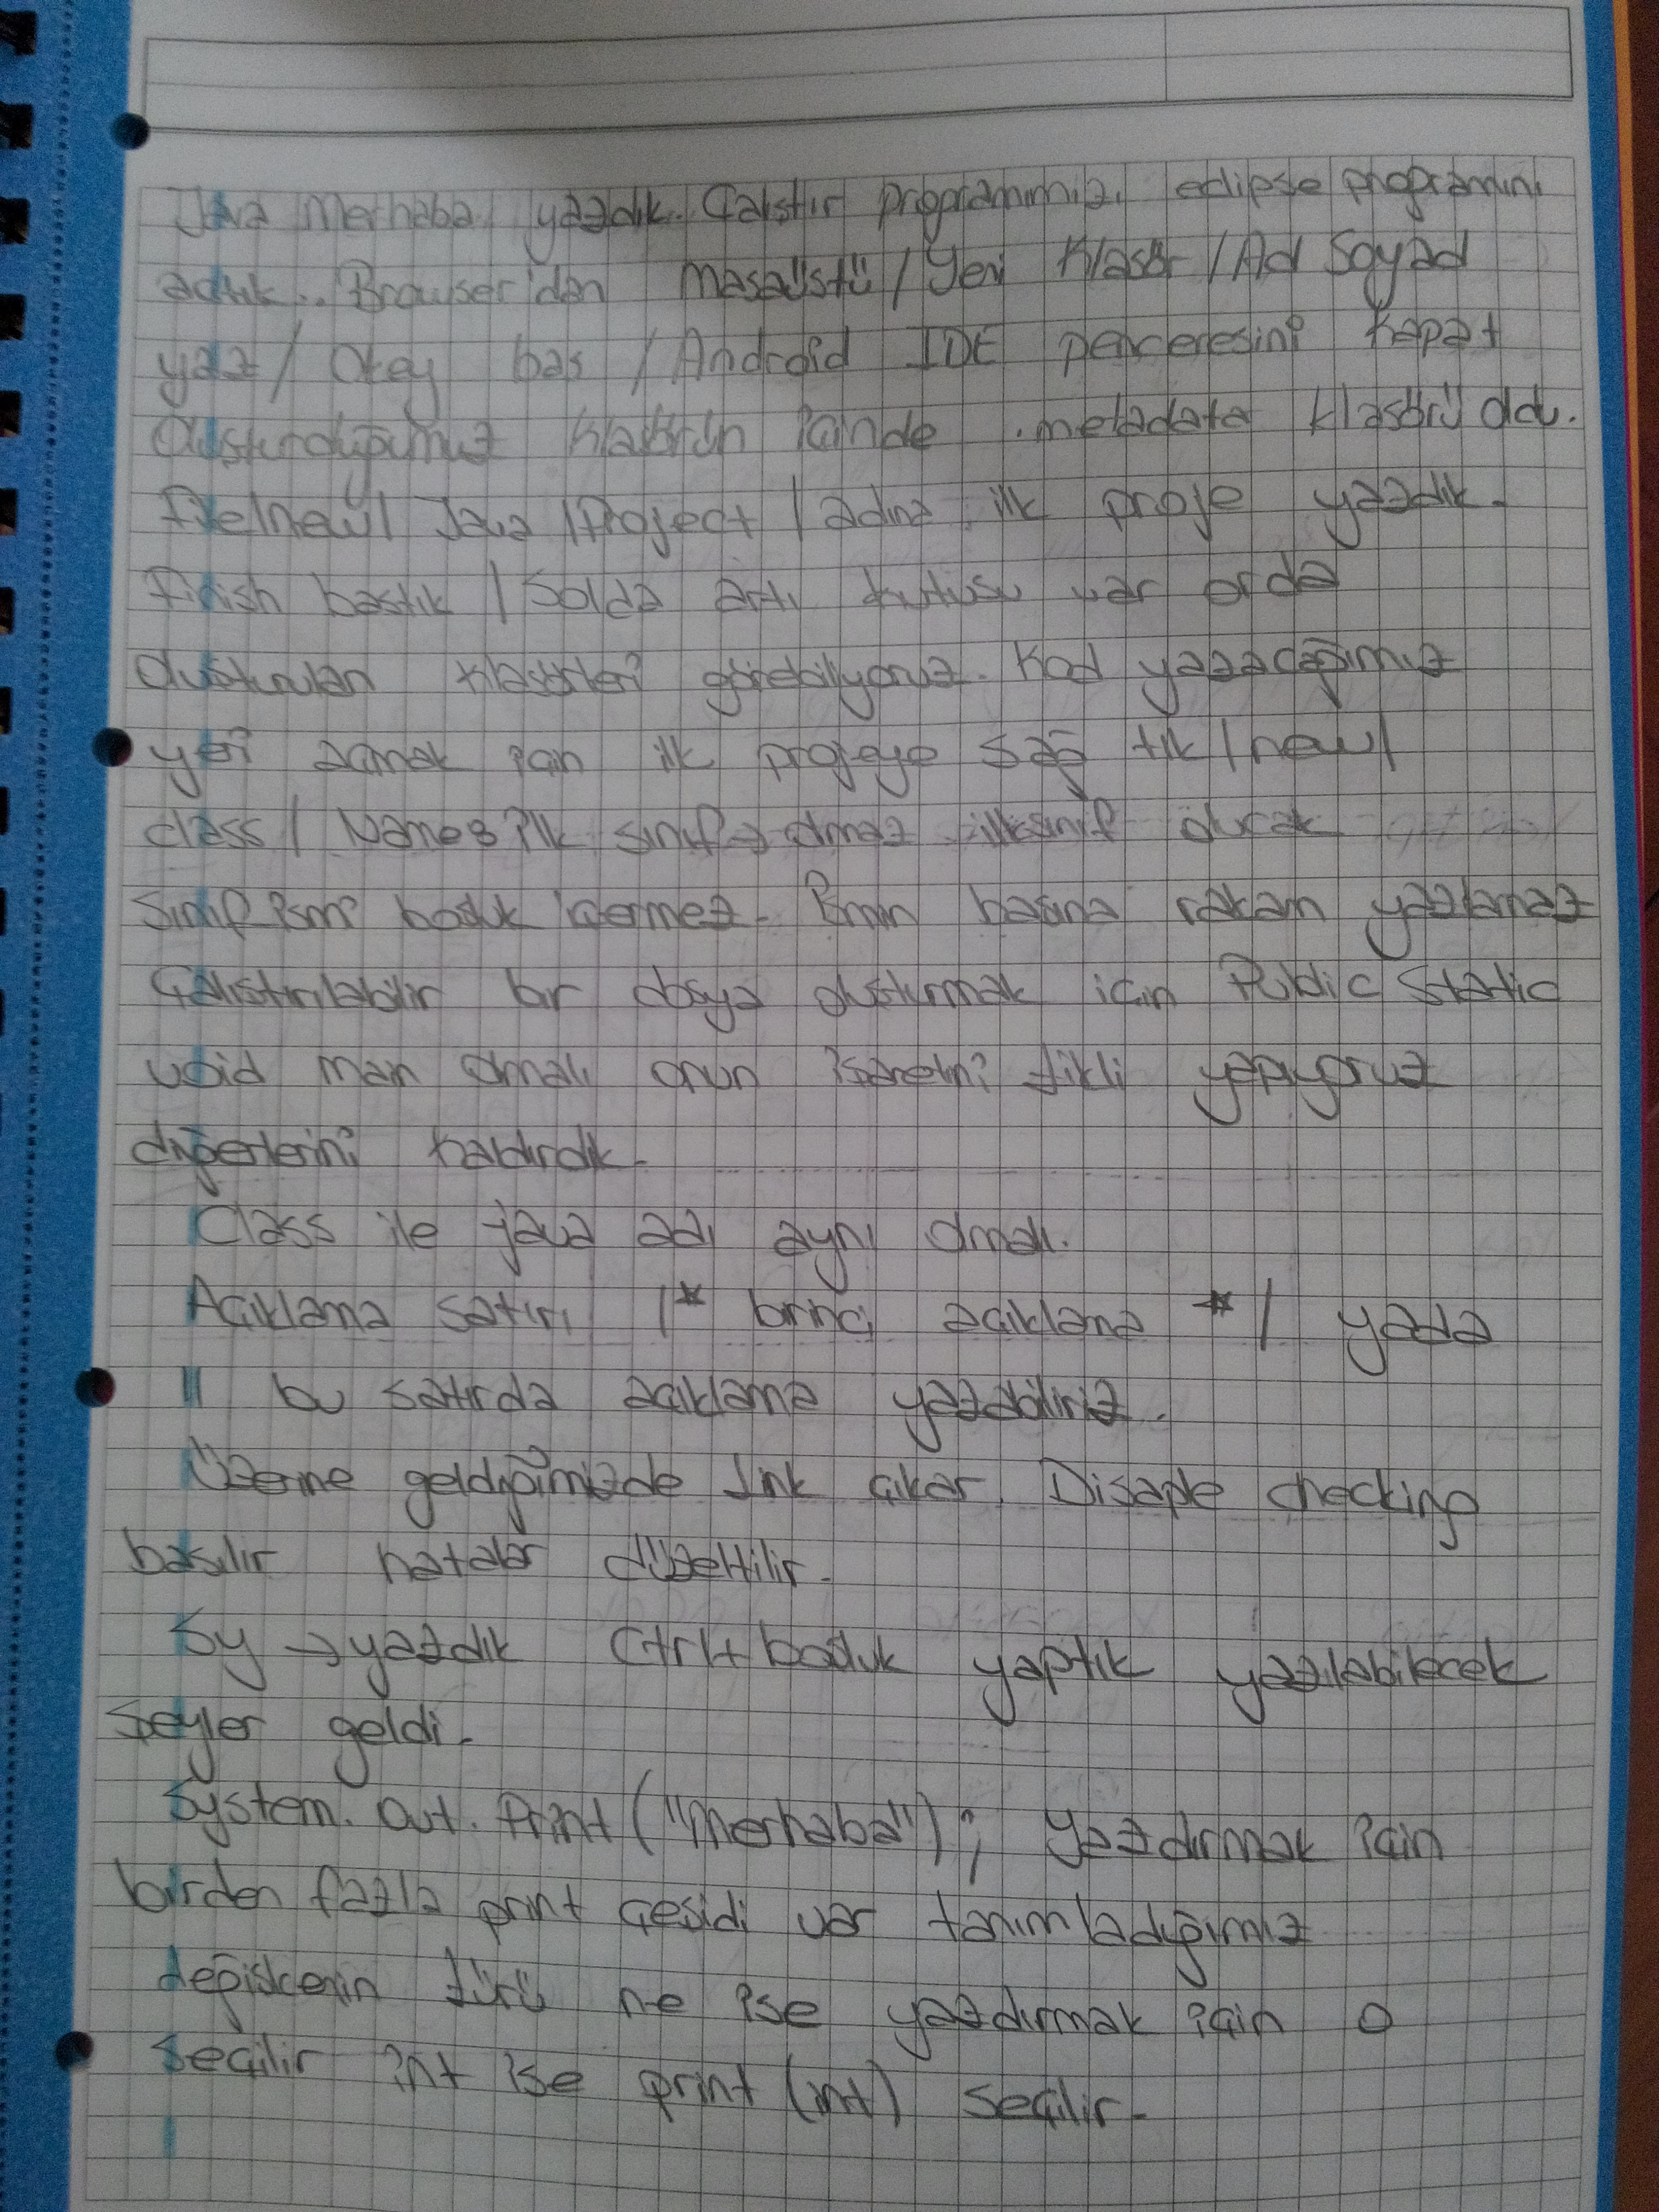 Java Merhaba yazdık. Çalıştır programımızı eclipse programını
açtık.. Browser'dan masaüstü / Yeni Klasör / Ad Soyad
yaz / Okey bas / Android IDE penceresini kapat
Oluşturduğumuz klasörün içinde .metadata klasörü oldu.
File/new/ Java / Project / adına ilk proje yazdık.
Finish bastık / Solda artı kutusu var orda
oluşturulan klasörleri görebiliyoruz. Kod yazacağımız
yeri açmak için ilk projeye sağ tık / new/
class / Name: ilk sınıf → olmaz ilksınıf olucak
Sınıf ismi boşluk içermez. İsmin başına rakam yazılamaz
Çalıştırılabilir bir dosya oluşturmak için Public static
void main olmalı onun işaretini tikli yapıyoruz
diğerlerini kaldırdık.
Class ile java adı aynı olmalı.
Açıklama satırı /* birinci açıklama */ yada
// bu satırda açıklama yazabiliriz.
Üzerine geldiğimizde link çıkar. Disaple checking
basılır hatalar düzeltilir.
Sy → yazdık Ctrl+boşluk yaptık yazılabilecek
şeyler geldi.
System. out. Print ("Merhaba"); Yazdırmak için
birden fazla print çeşidi var tanımladığımız
değişkenin türü ne ise yazdırmak için o
seçilir int ise print (int) seçilir.